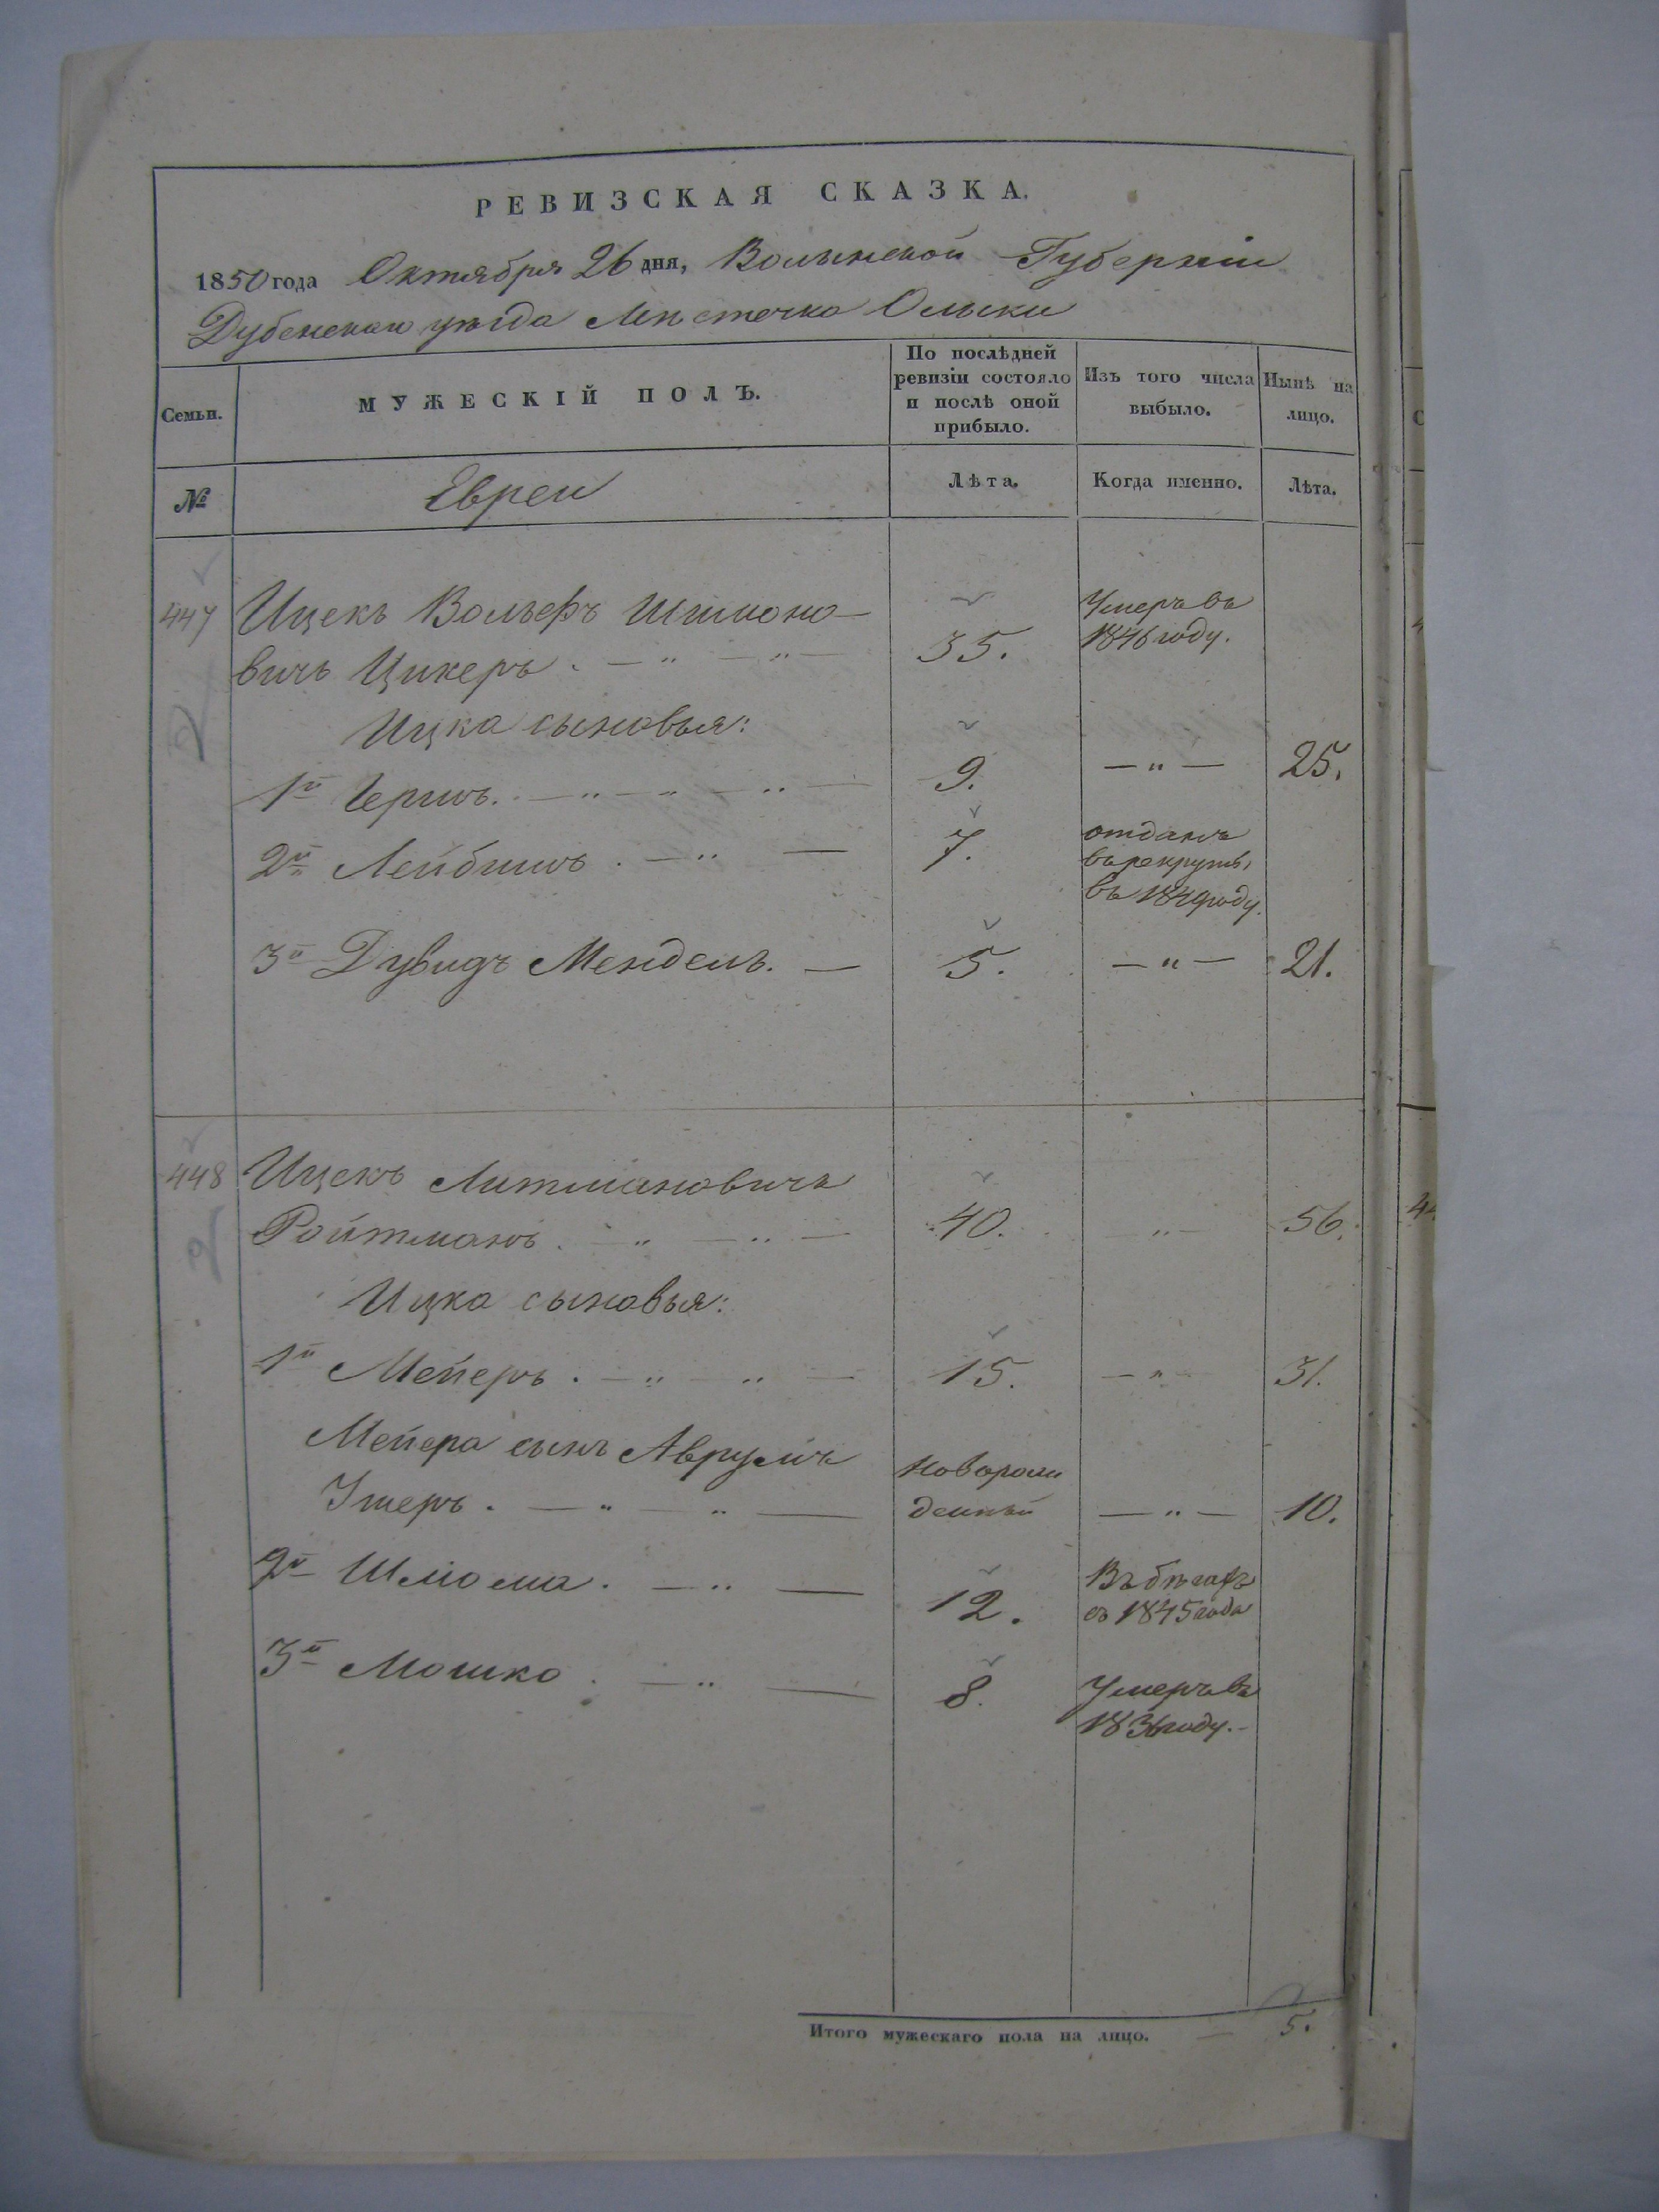 РЕВИЗСКАЯ СКАЗКА.
1850 года Октября 26 дня, Волынской Губерніи
Дубенскаго уѣзда Мѣстечка Олыки
Семьи.
МУЖЕСКІЙ ПОЛЪ.
По послѣдней
ревизіи состояло
и послѣ оной
прибыло.
Изъ того числа
выбыло.
Нынѣ на
лицо.
№
Евреи
Лѣта.
Когда именно.
Лѣта.
447 Ицекъ Вольфъ Шимоно-
вичъ Цикеръ. — " — " — 35. Умеръ въ
1846 году.
Ицка сыновья:
1й Гершъ. — " — " — " — 9. — " — 25.
2й Лейбишъ. — " — 7. отданъ
въ рекруты
въ 1849 году.
3й Дувидъ Мендель. — 5. — " — 21.
448 Ицекъ Литмановичъ
Ройтманъ. — " — " — 40. " — 56.
Ицка сыновья:
1й Мейеръ. — " — " — 15. — " — 31.
Мейера сынъ Аврумъ
Ушеръ. — " — " — новорож
денный — " — 10.
2й Шлiома. — " — 12. Въ бѣгахъ
съ 1845 года
3й Мошко. — " — 8. Умеръ въ
1836 году. -
Итого мужескаго пола на лицо. — 5.